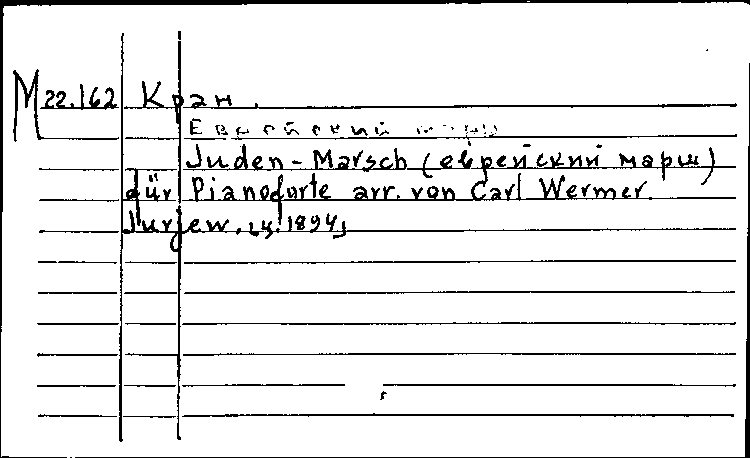 M 22.162 Кран.
Еврейский марш
Juden-Marsch (еврейский марш)
für Pianoforte arr. von Carl Wermer.
Jurjew. 1894